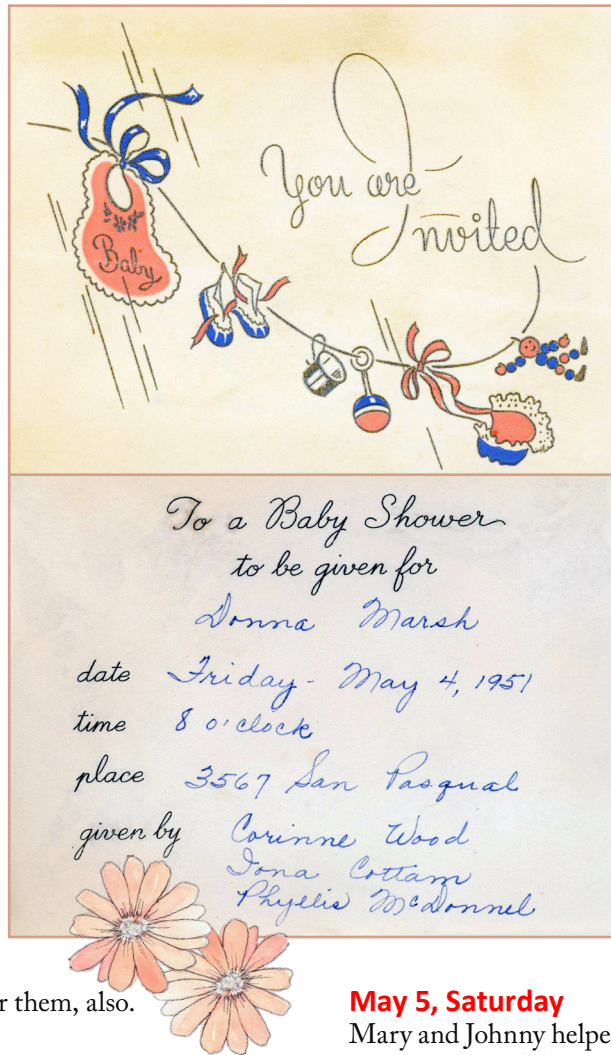 You are
Invited
Baby
To a Baby Shower
to be given for
Donna Marsh
date Friday - May 4, 1951
time 8 o'clock
place 3567 San Pasqual
given by Corinne Wood
Iona Cottam
Phyllis McDonnel
r them, also.
May 5, Saturday
Mary and Johnny helpe